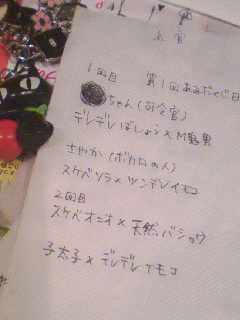 1回目 第1回あみだくじ
ちゃん(司令官)
デレデレばしょう×M鬼男
さやか(ボカロの人)
スケベソラ×ツンデレイモコ
2回目
スケベオニオ×天然バショウ
子太子×デレデレイモコ